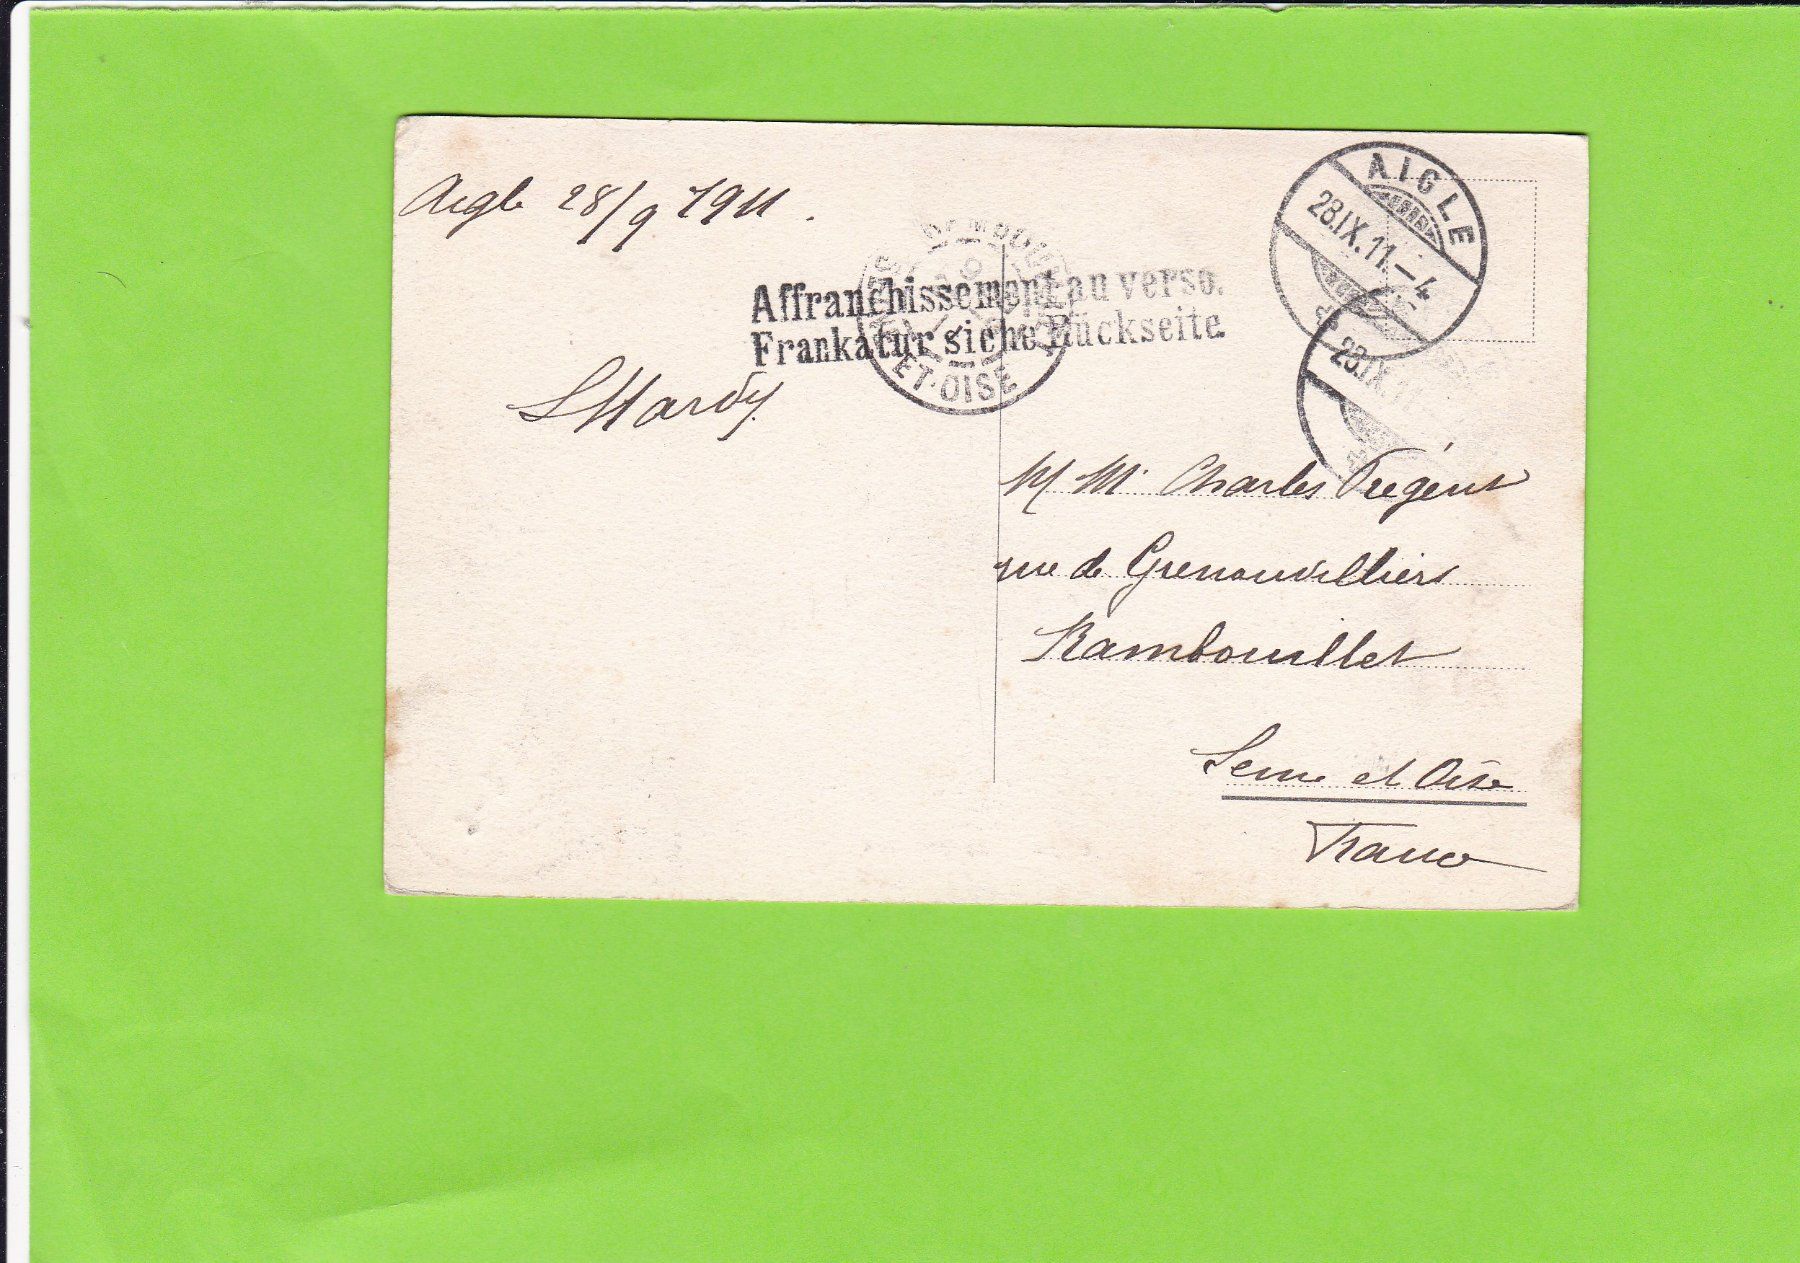 Aigle 28/9 1911.
AIGLE
28.IX.11.–4
Affranchissement au verso.
Frankatur siehe Rückseite.
RAMBOUILLET
ET-OISE
28.IX.
LHardy.
M Mr Charles
rue de Grenouvilliers
Rambouillet
Seine et Oise
France